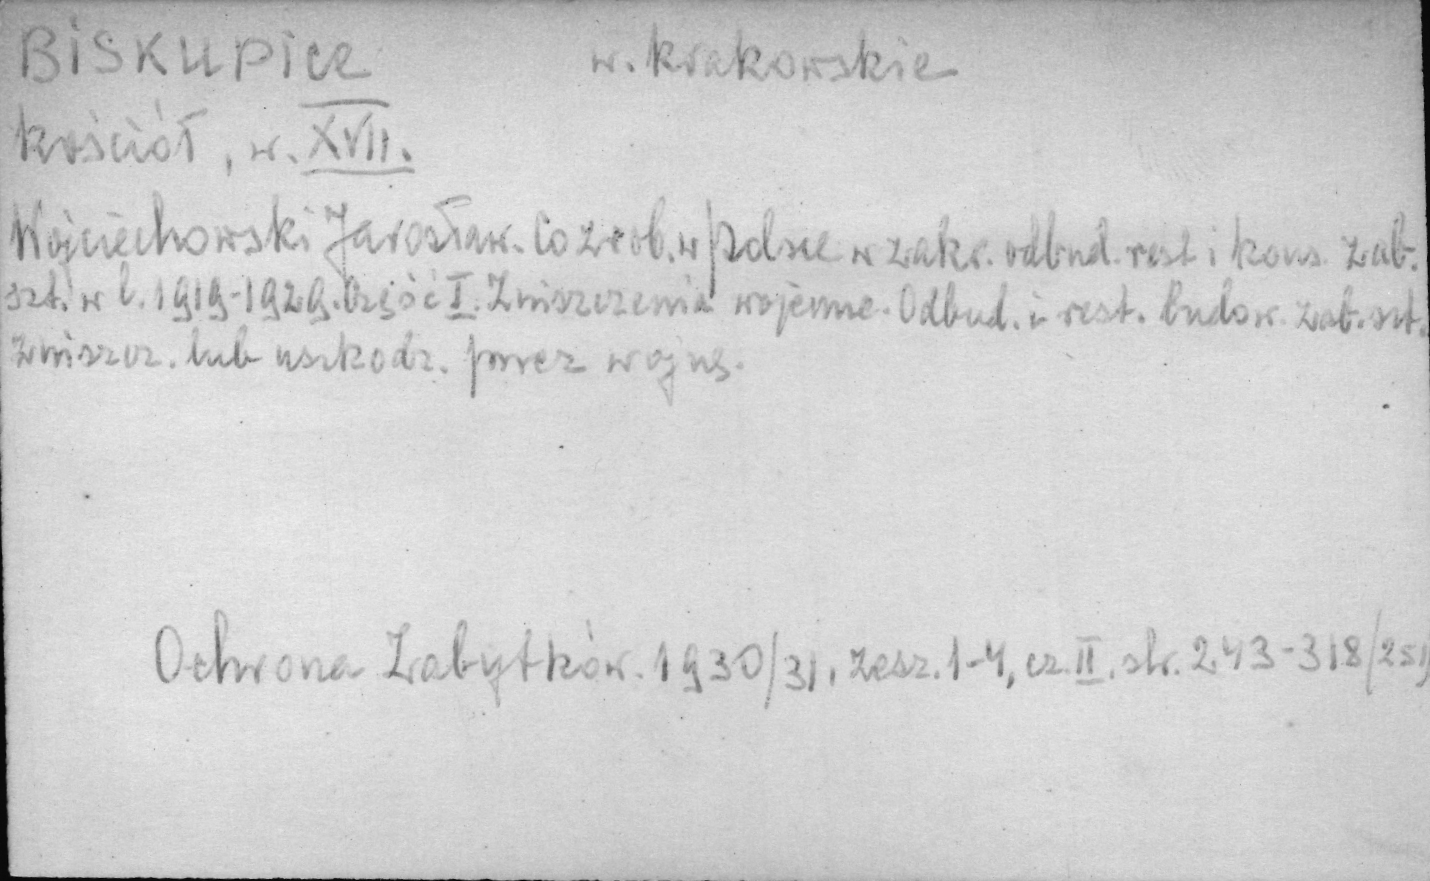 BiSKUPiCE w. krakowskie
kościół, w. XVII.
Wojciechowski Jarosław. Co zrob. w Polsce w zakr. odbud. rest i kons. zab.
szt. w l. 1919-1929. Część I. Zniszczenia wojenne. Odbud. i rest. budow. zab. szt.
zniszcz. lub uszkodz. przez wojnę.
Ochrona Zabytków. 1930/31, zesz. 1-4, cz. II. str. 243-318/251/